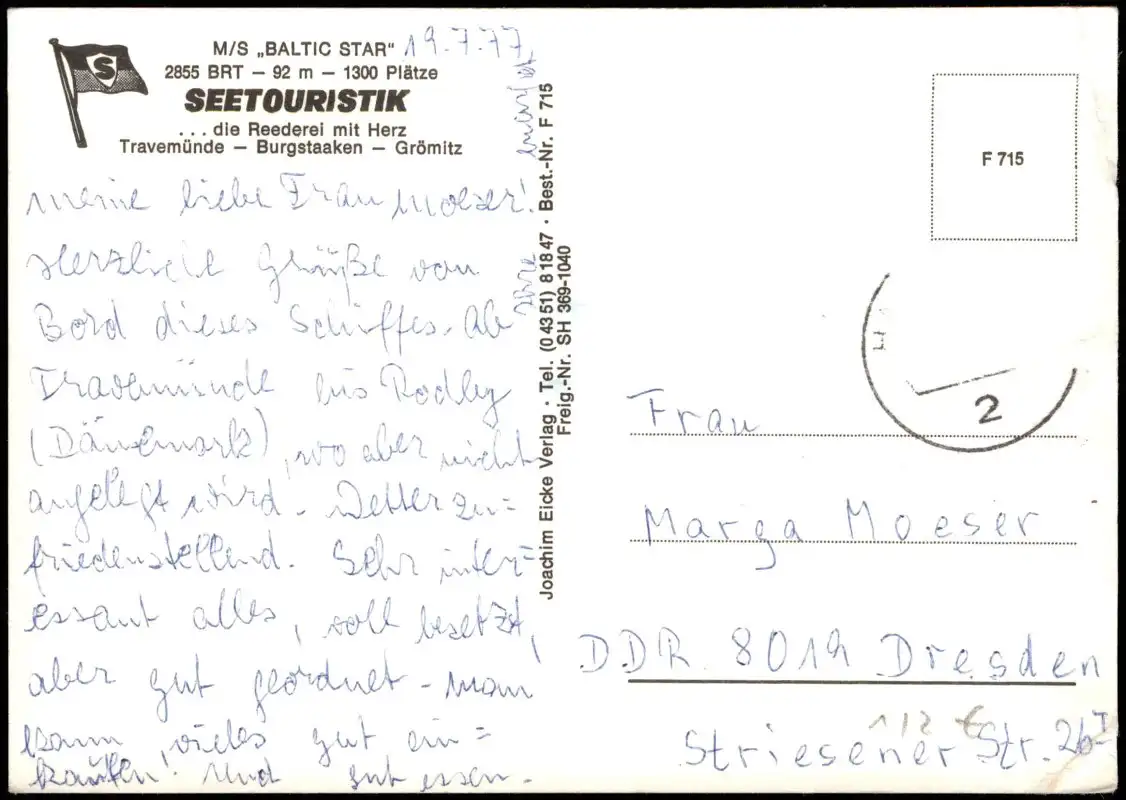 M/S „BALTIC STAR“ 19.7.77.
2855 BRT – 92 m – 1300 Plätze
S
SEETOURISTIK
...die Reederei mit Herz
Travemünde – Burgstaaken – Grömitz
Meine liebe Frau Moeser!
Herzliche Grüße von
Bord dieses Schiffes. Ab
Travemünde bis Rodby
(Dänemark), wo aber nicht
angelegt wird. Wetter zu=
friedenstellend. Sehr inter=
essant alles, voll besetzt,
aber gut geordnet – Man
kann vieles gut ein=
kaufen! Und gut essen.
Ihre
Joachim Eicke Verlag · Tel. (04351) 81847 · Best.-Nr. F 715
Freig.-Nr. SH 369-1040
F 715
2
Frau
Marga Moeser
DDR 8019 Dresden
Striesener Str. 26 I
1/2 €